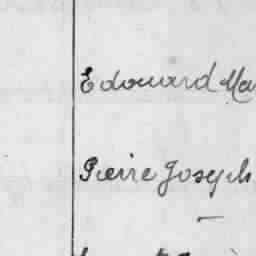 Edouard Ma
Pierre Joseph